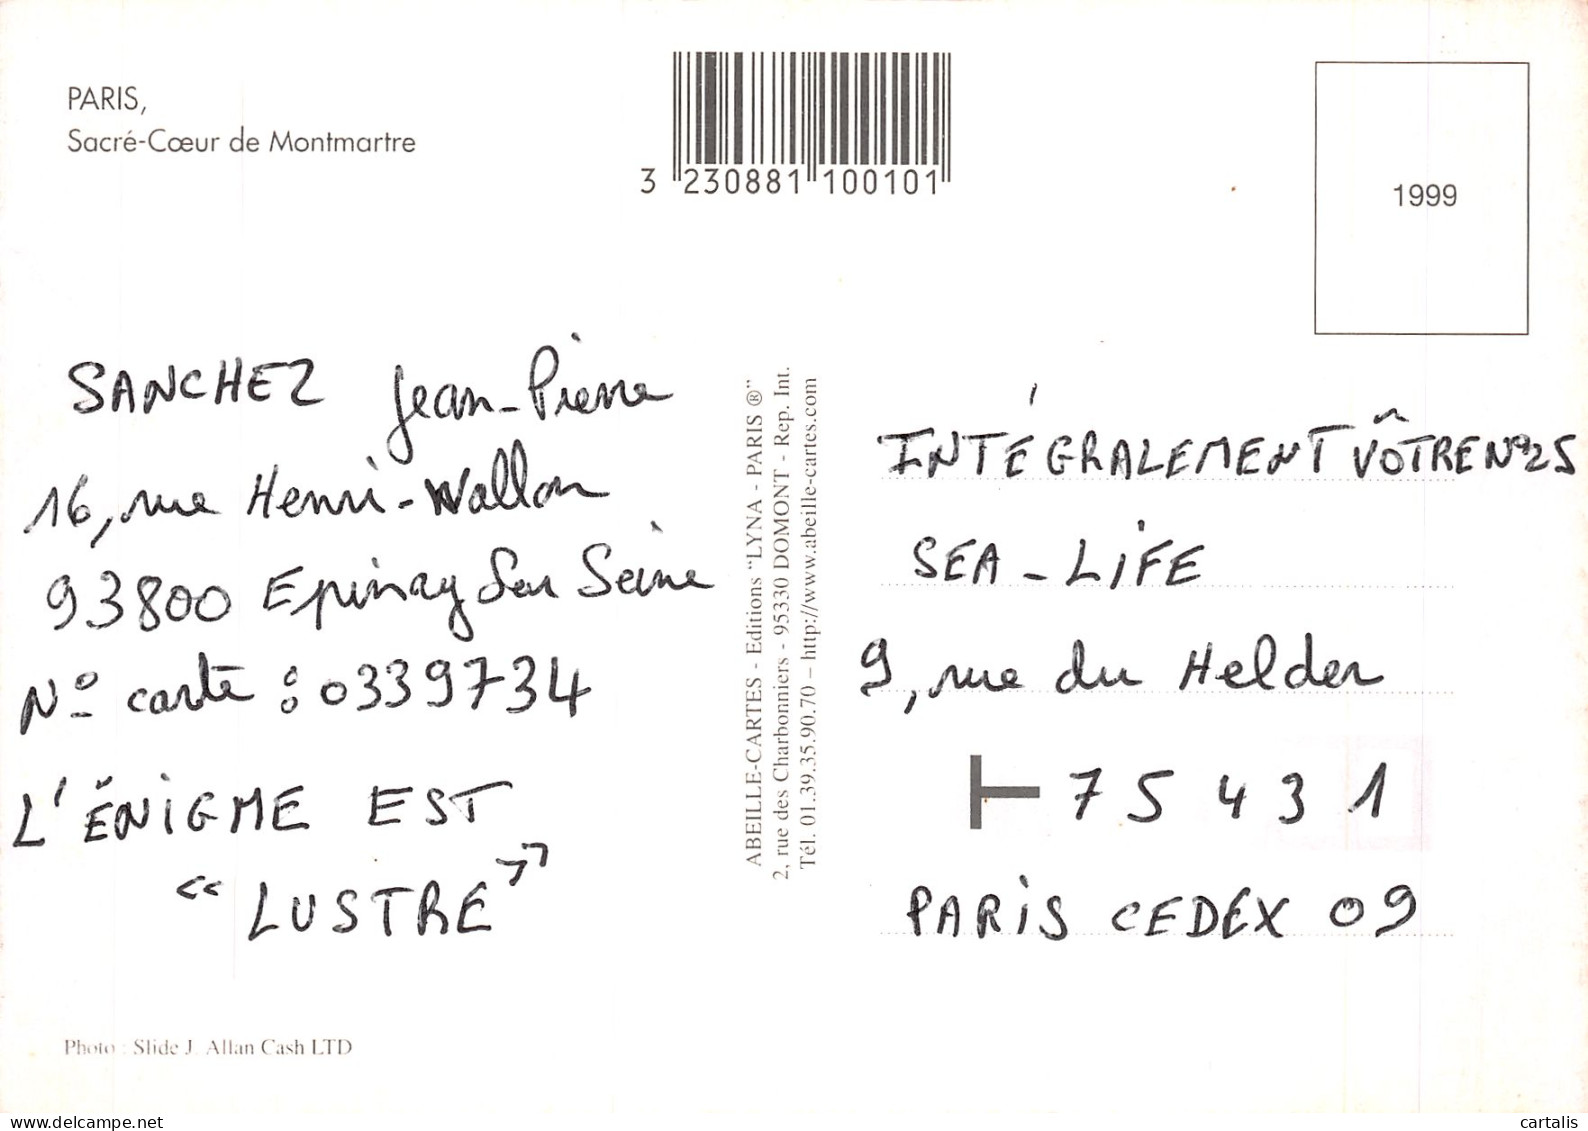 PARIS,
Sacré-Cœur de Montmartre
3 230881 100101
1999
SANCHEZ Jean-Pierre
16, rue Henri-Wallon
93800 Epinay Sur Seine
N° carte : 0339734
L'ÉNIGME EST
"LUSTRE"
ABEILLE-CARTES - Editions "LYNA - PARIS ®"
2, rue des Charbonniers - 95330 DOMONT - Rep. Int.
Tél. 01.39.35.90.70 – http://www.abeille-cartes.com
INTÉGRALEMENT VÔTRE N°25
SEA - LIFE
9, rue du Helder
T 75431
PARIS CEDEX 09
Photo : Slide J. Allan Cash LTD
delcampe.net
cartalis